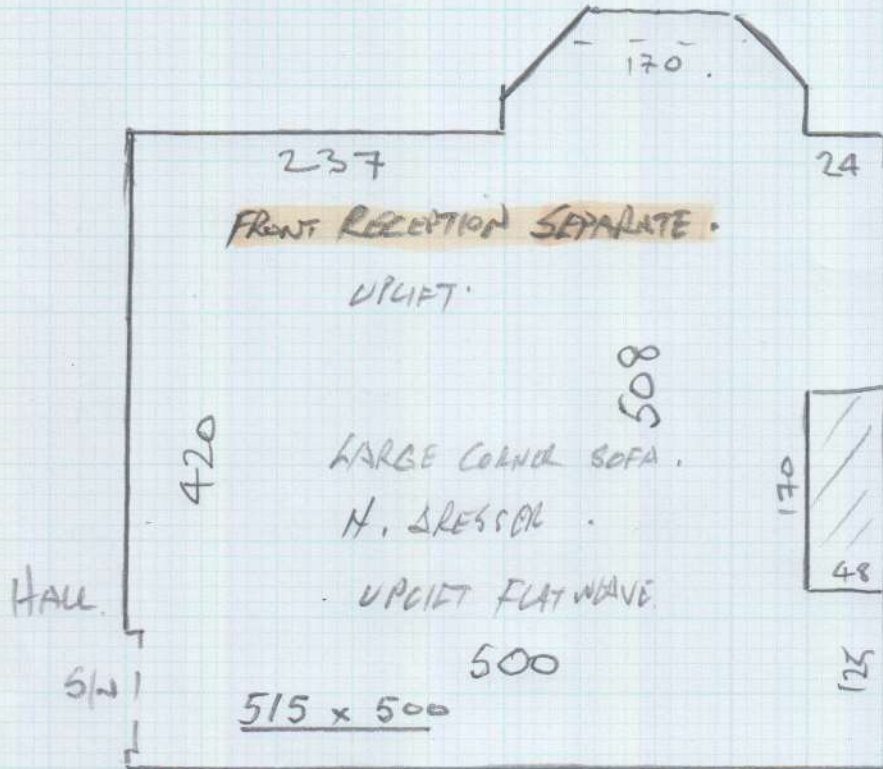 170.
237
24
FRONT RECEPTION SEPARATE.
UPLIFT.
508
420
LARGE CORNER SOFA.
170
N. DRESSER.
48
HALL.
UPLIFT FLATWEAVE
500
125
S/N
515 x 500